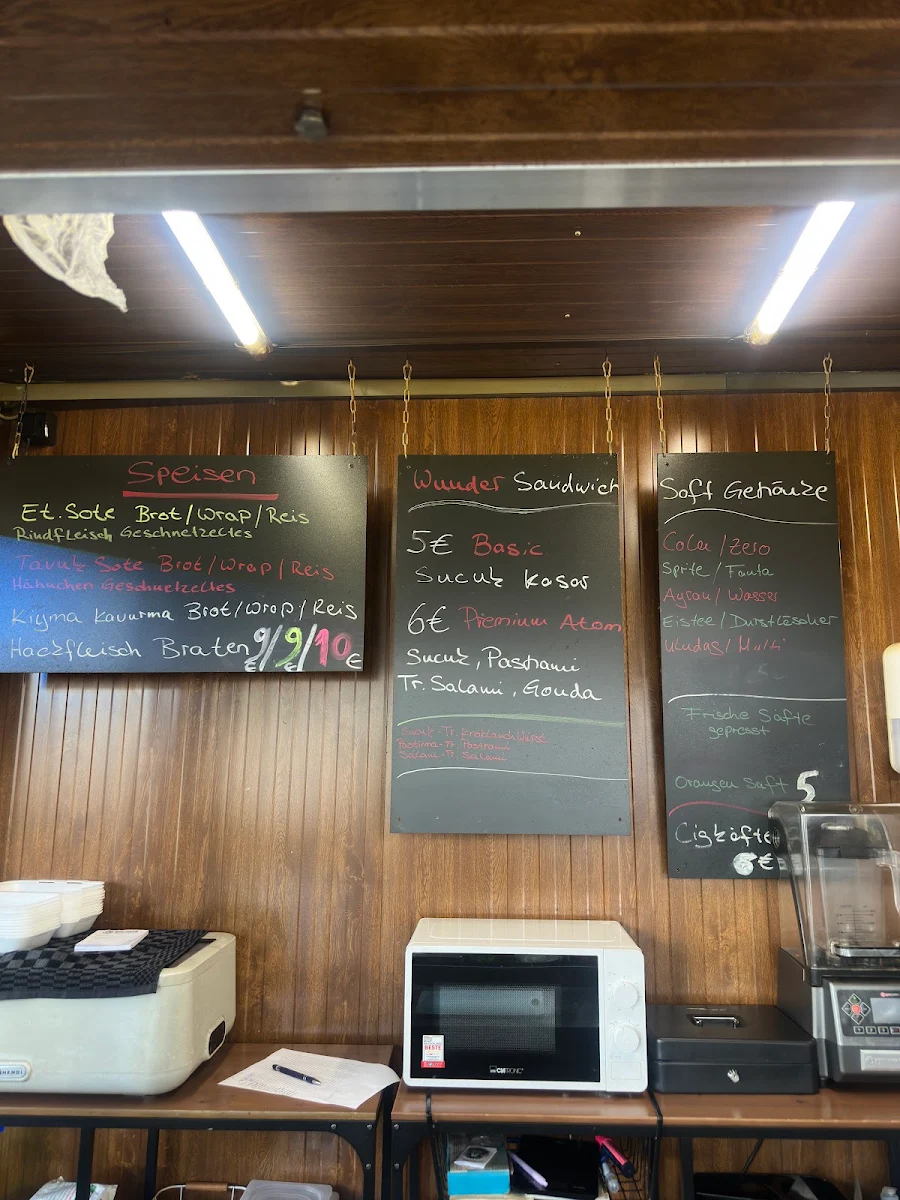 Speisen
Et.Sote Brot/Wrap/Reis
Rindfleisch Geschnetzeltes
Tavuk Sote Brot/Wrap/Reis
Hähnchen Geschnetzeltes
Kiyma Kavurma Brot/Wrap/Reis
Hackfleisch Braten 9/9/10
€ € €
Wunder Sandwich
5€ Basic
Sucuk Kasar
6€ Premium Atom
Sucuk, Pastrami
Tr. Salami, Gouda
Sucuk - Tr. Knoblauch Wurst
Pastirma - Tr. Pastrami
Salami - Tr. Salami
Soft Getränke
Cola / Zero
Sprite / Fanta
Ayran / Wasser
Eistee / Durstlöscher
Uludag / Multi
Frische Säfte
gepresst
Orangen Saft 5
Cigköfte
€
HENDI
CLATRONIC